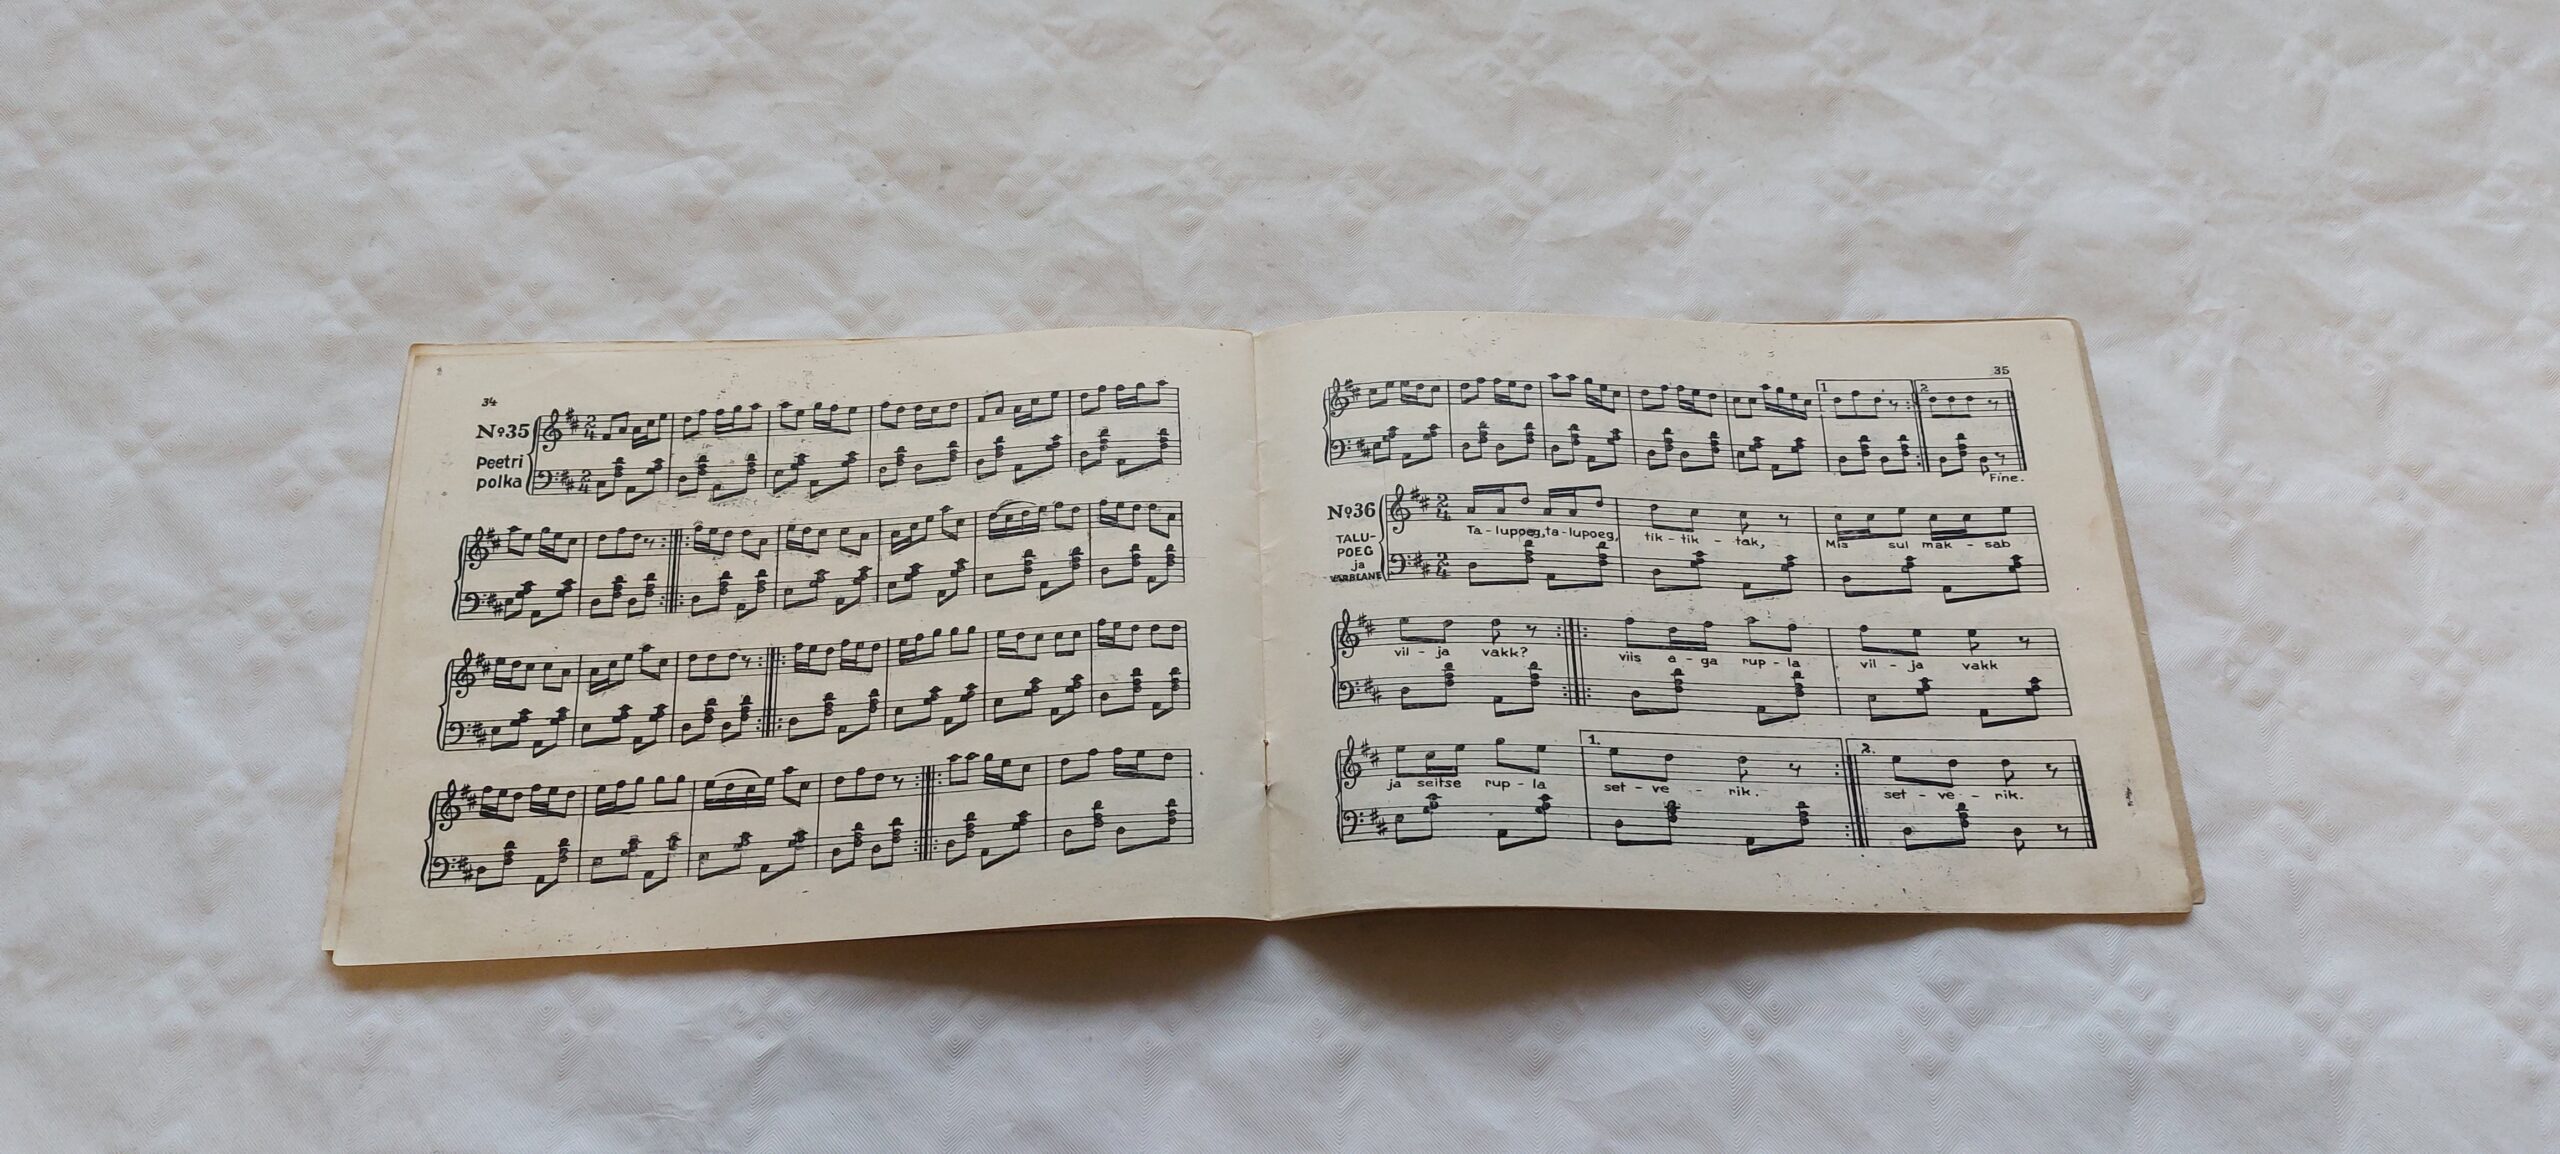 34
№35
Peetri
polka
35
1
2
Fine.
№36
TALU-
POEG
ja
VARBLANE
Ta-lupoeg,ta-lupoeg, tik-tik-tak, Mis sul mak-sab
vil-ja vakk? viis a-ga rup-la vil-ja vakk
1. 2.
ja seitse rup-la set-ve-rik. set-ve-rik.